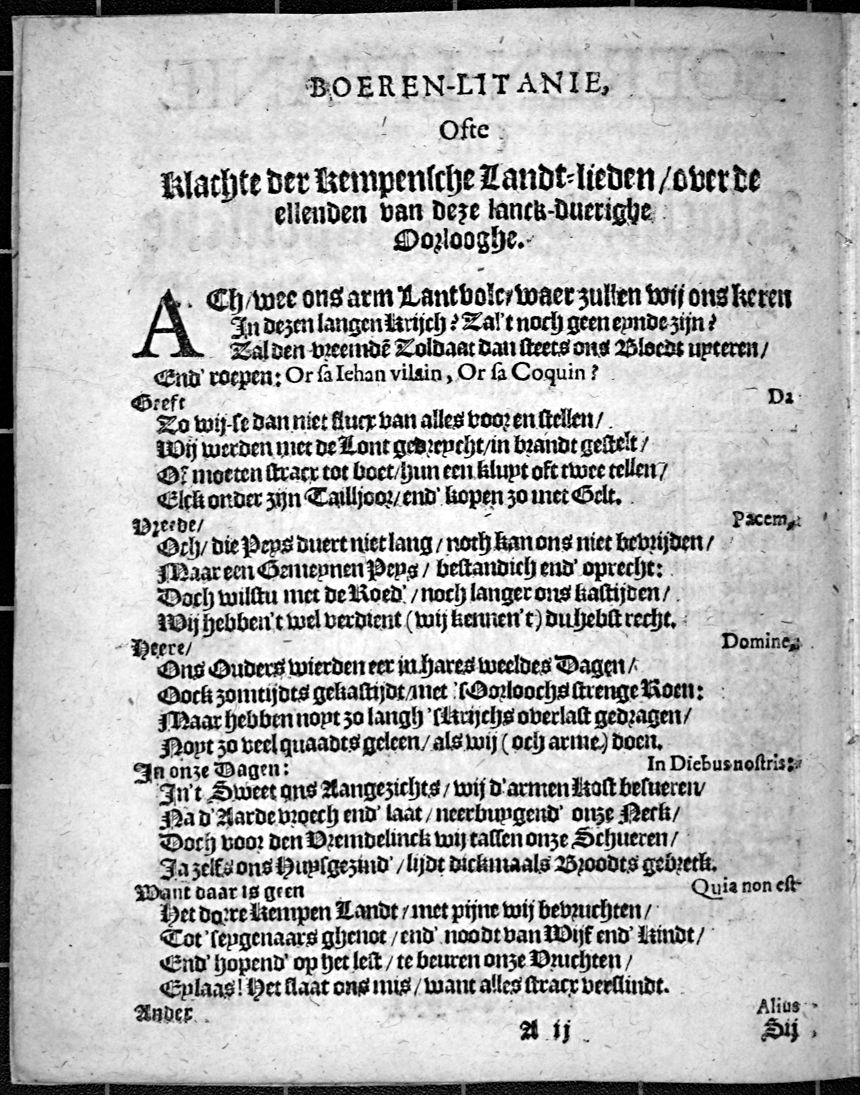 BOEREN-LITANIE,
Ofte
Klachte der Kempensche Landt-lieden/over de
ellenden van deze lanck-duerighe
Oorlooghe.
ACh/wee ons arm Lantvolc/waer zullen wij ons keren
In dezen langen Krijch? Zal't noch geen eynde zijn?
Zal den vreemdē Zoldaat dan steets ons Bloedt upteren/
End' roepen: Or sa Iehan vilain, Or sa Coquin?
Geeft Da
Zo wij-se dan niet flucx van alles voor en stellen/
Wij werden met de Lont gedreycht/in brandt gestelt/
Oft moeten stracx tot boet/hun een kluyt oft twee tellen/
Elck onder zijn Tailljoor/end' kopen zo met Gelt.
Vreede/ Pacem,
Och/ die Peys duert niet lang/ noch kan ons niet bevrijden/
Maar een Gemeynen Peys/ bestandich end' oprecht:
Doch wilstu met de Roed'/ noch langer ons kastijden/
Wij hebben't wel verdient (wij kennen't) du hebst recht.
Heere/ Domine,
Ons Ouders wierden eer in hares weeldes Dagen/
Oock zomtijdts gekastijdt/met 'sOorloochs strenge Roen:
Maar hebben noyt zo langh 'sKrijchs overlast gedragen/
Noyt zo veel quaadts geleen/ als wij (och arme) doen.
In onze Dagen: In Diebus nostris:
In't Sweet ons Aangezichts/ wij d'armen Kost besueren/
Na d'Aarde vroech end' laat/ neerbuygend' onze Neck/
Doch voor den Vremdelinck wij tassen onze Schueren/
Ja zelfs ons Huysgezind'/ lijdt dickmaals Broodts gebreck.
Want daar is geen Quia non est
Het dorre Kempen Landt/ met pijne wij bevruchten/
Tot 'seygenaars ghenot/ end' noodt van Wijf end' Kindt/
End' hopend' op het lest/ te beuren onze Vruchten/
Eylaas! Het slaat ons mis/ want alles stracx verslindt.
Ander Alius
A ij Sij